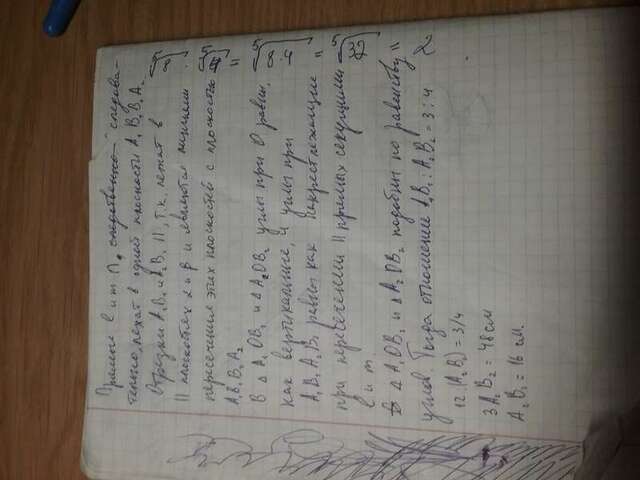 Прямые l и m П, следственно следова-
тельно, лежат в одной плоскости A₁ B₁ B₂ A₂
Отрезки A₁B₁ и A₂B₂ II, т.к. лежат в
II плоскостях α и β и являются линиями
пересечения этих плоскостей с плоскостью
A₁B₁B₂A₂
В △ A₁OB₁ и △ A₂OB₂ углы при O равны,
как вертикальные, и углы при
A₁ B₁ A₂ B₂ равны как накрестлежащие
при пересечении II прямых секущими
l и m.
△ A₁OB₁ и △ A₂OB₂ подобны по равенству
углов. Тогда отношение A₁B₁ : A₂B₂ = 3 : 4
12 : (A₂B₂) = 3/4
3 A₂B₂ = 48 см
A₂B₂ = 16 см.
⁵√8 · ⁵√4 = ⁵√8·4 = ⁵√32 = 2